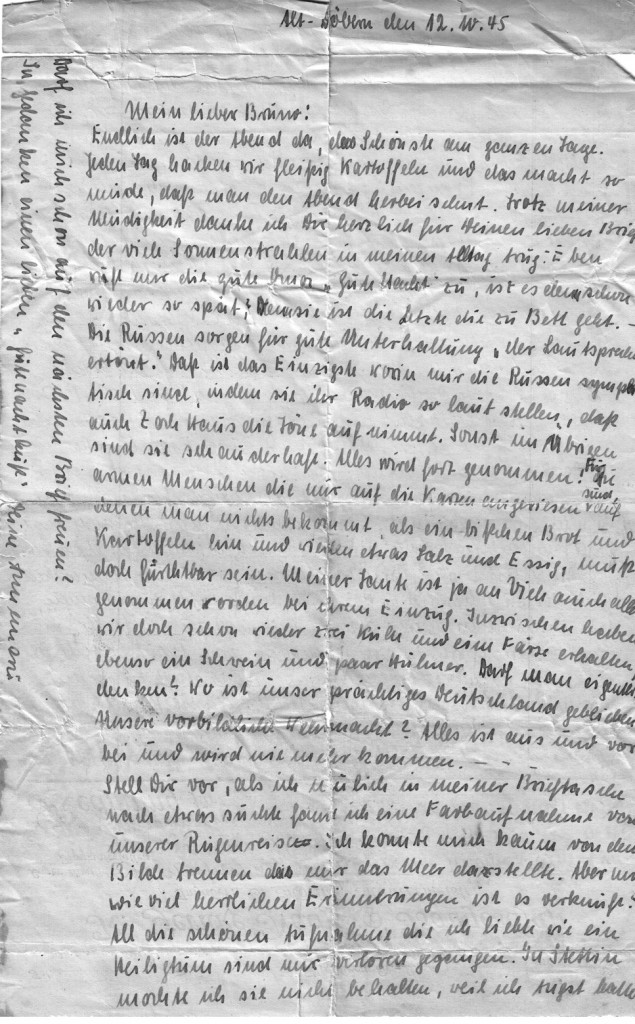 Alt-Döbern den 12.IV.45
Mein lieber Bruno!
Endlich ist der Abend da, das Schönste am ganzen Tage.
Jeden Tag hacken wir fleißig Kartoffeln und das macht so
müde, daß man den Abend herbei sehnt. Trotz meiner
Müdigkeit danke ich Dir herzlich für Deinen lieben Brief
der viele Sonnenstrahlen in meinen Alltag trug. Eben
ruft mir die gute Oma „Gute Nacht" zu, ist es denn schon
wieder so spät? Denn sie ist die Letzte die zu Bett geht. –
Die Russen sorgen für gute Unterhaltung „der Lautsprecher
ertönt." Daß ist das Einzigste worin mir die Russen sympa
tisch sind, indem sie ihr Radio so laut stellen, daß
auch Haus die Töne auf nimmt. Sonst im Übrigen
sind sie schauderhaft. Alles wird fort genommen! Für
armen Menschen die nur auf die Karten angewiesen sind auf
denen man nichts bekommt, als ein bißchen Brot und
Kartoffeln hin und wieder etwas Salz und Essig, muß
doch furchtbar sein. Meiner Tante ist ja an Vieh auch alles
genommen worden bei ihrem Einzug. Inzwischen haben
wir doch schon wieder zwei Kühe und eine Färse erhalten
ebenso ein Schwein und paar Hühner. Darf man eigentl
denken? Wo ist unser prächtiges Deutschland geblieben
Unsere vorbildliche Wehrmacht? Alles ist aus und vor
bei und wird nie mehr kommen. – –
Stell Dir vor, als ich neulich in meiner Brieftasche
nach etwas suchte fand ich eine Farbaufnahme von
unserer Rügenreise. Ich konnte mich kaum von dem
Bilde trennen das nur das Meer darstellte. Aber mit
wie viel herrlichen Erinnerungen ist es verknüpft!
All die schönen Aufnahme die ich liebte wie ein
Heiligtum sind mir verloren gegangen. In Stettin
mochte ich sie nicht behalten, weil ich Angst hatte
Darf ich mich schon auf den nächsten Brief freuen?
In Gedanken einen lieben „Gutenachtkuß" Deine Annemarie